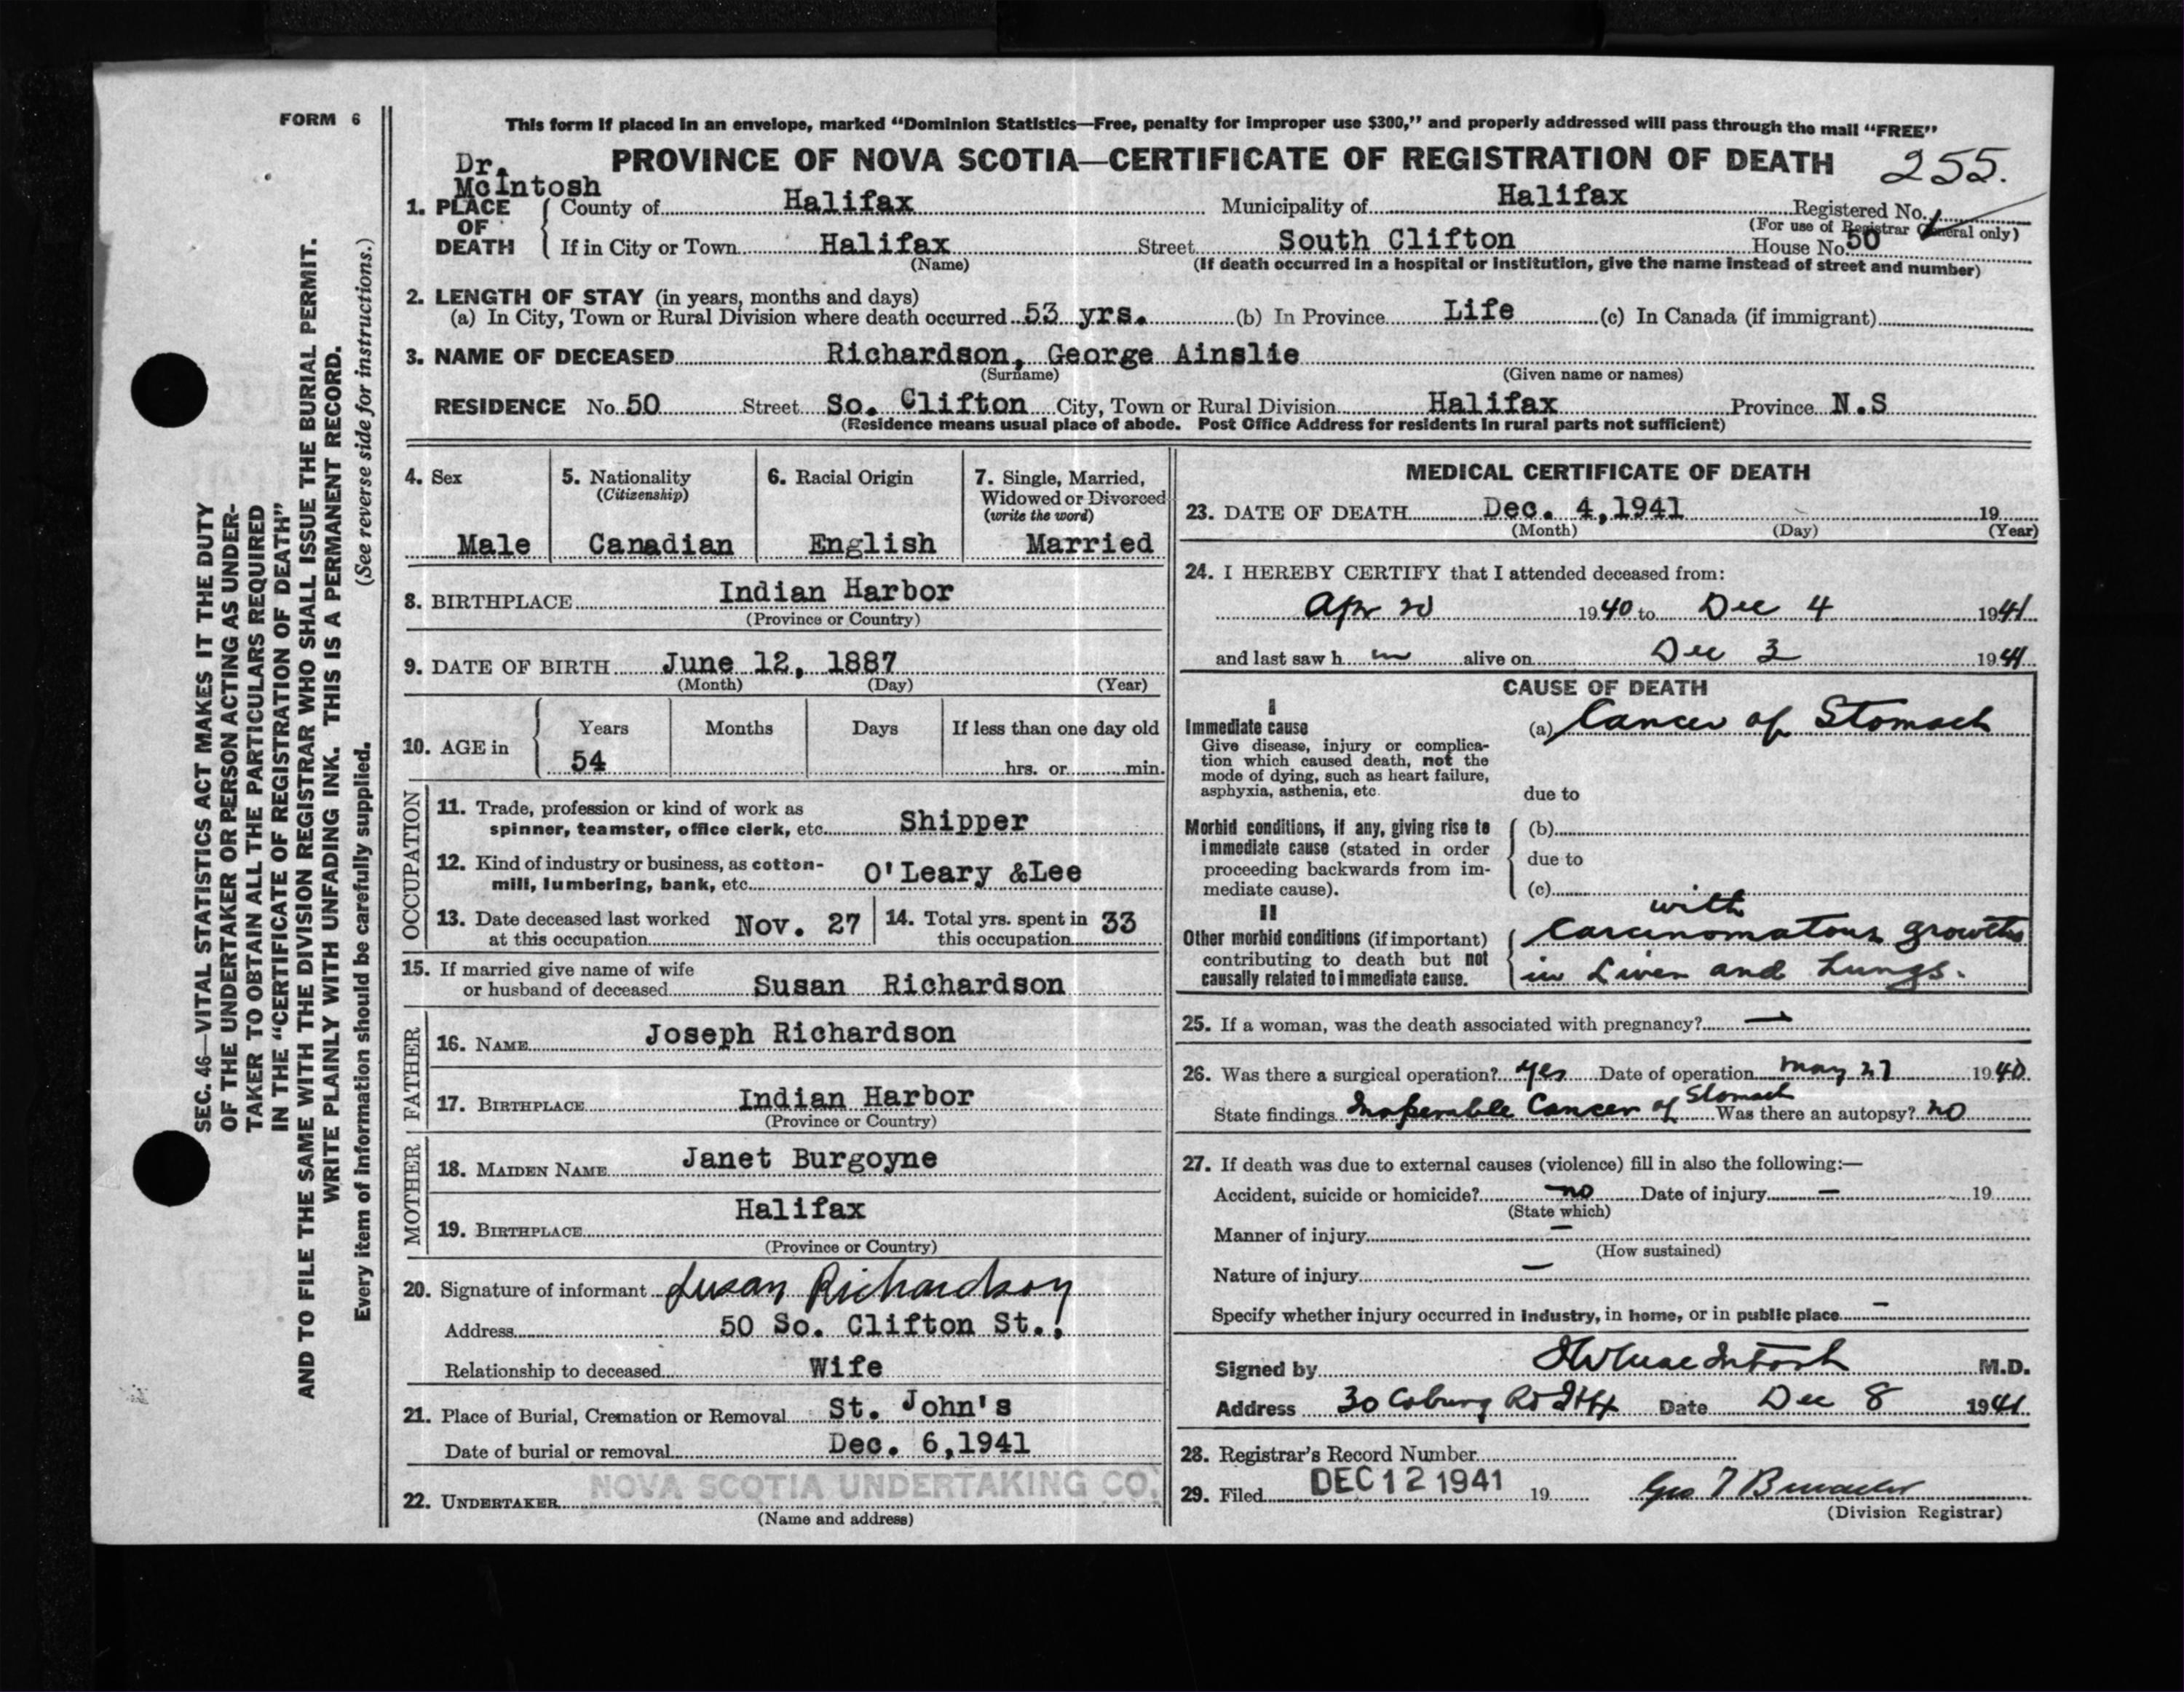 FORM 6
This form if placed in an envelope, marked "Dominion Statistics—Free, penalty for improper use $300," and properly addressed will pass through the mail "FREE"
PROVINCE OF NOVA SCOTIA—CERTIFICATE OF REGISTRATION OF DEATH 255.
Dr.
McIntosh
1. PLACE OF DEATH County of Halifax Municipality of Halifax Registered No.
(For use of Registrar General only)
If in City or Town Halifax Street South Clifton House No. 50
(Name) (If death occurred in a hospital or institution, give the name instead of street and number)
2. LENGTH OF STAY (in years, months and days)
(a) In City, Town or Rural Division where death occurred 53 yrs. (b) In Province Life (c) In Canada (if immigrant)
3. NAME OF DECEASED Richardson, George Ainslie
(Surname) (Given name or names)
RESIDENCE No. 50 Street So. Clifton City, Town or Rural Division Halifax Province N.S
(Residence means usual place of abode. Post Office Address for residents in rural parts not sufficient)
4. Sex
Male
5. Nationality
(Citizenship)
Canadian
6. Racial Origin
English
7. Single, Married,
Widowed or Divorced
(write the word)
Married
8. BIRTHPLACE Indian Harbor
(Province or Country)
9. DATE OF BIRTH June 12, 1887
(Month) (Day) (Year)
10. AGE in Years Months Days If less than one day old
54 hrs. or min.
OCCUPATION
11. Trade, profession or kind of work as
spinner, teamster, office clerk, etc. Shipper
12. Kind of industry or business, as cotton-
mill, lumbering, bank, etc. O'Leary &Lee
13. Date deceased last worked
at this occupation Nov. 27
14. Total yrs. spent in
this occupation 33
15. If married give name of wife
or husband of deceased Susan Richardson
FATHER
16. NAME Joseph Richardson
17. BIRTHPLACE Indian Harbor
(Province or Country)
MOTHER
18. MAIDEN NAME Janet Burgoyne
19. BIRTHPLACE Halifax
(Province or Country)
20. Signature of informant Susan Richardson
Address 50 So. Clifton St.,
Relationship to deceased Wife
21. Place of Burial, Cremation or Removal St. John's
Date of burial or removal Dec. 6,1941
22. UNDERTAKER NOVA SCOTIA UNDERTAKING CO.
(Name and address)
MEDICAL CERTIFICATE OF DEATH
23. DATE OF DEATH Dec. 4,1941 19
(Month) (Day) (Year)
24. I HEREBY CERTIFY that I attended deceased from:
Apr 20 1940 to Dec 4 1941
and last saw h im alive on Dec 3 1941
CAUSE OF DEATH
I
Immediate cause (a) Cancer of Stomach
Give disease, injury or complica-
tion which caused death, not the
mode of dying, such as heart failure,
asphyxia, asthenia, etc.
due to
Morbid conditions, if any, giving rise to
immediate cause (stated in order
proceeding backwards from im-
mediate cause).
(b)
due to
(c)
II
Other morbid conditions (if important)
contributing to death but not
causally related to immediate cause.
with
Carcinomatous growths
in Liver and Lungs.
25. If a woman, was the death associated with pregnancy? —
26. Was there a surgical operation? yes Date of operation May 27 1940
State findings Inoperable Cancer of Stomach Was there an autopsy? no
27. If death was due to external causes (violence) fill in also the following:—
Accident, suicide or homicide? no Date of injury — 19
(State which)
Manner of injury —
(How sustained)
Nature of injury —
Specify whether injury occurred in industry, in home, or in public place —
Signed by MacIntosh M.D.
Address 30 Coburg Rd Hfx Date Dec 8 1941
28. Registrar's Record Number
29. Filed DEC 12 1941 19
(Division Registrar)
SEC. 46—VITAL STATISTICS ACT MAKES IT THE DUTY
OF THE UNDERTAKER OR PERSON ACTING AS UNDER-
TAKER TO OBTAIN ALL THE PARTICULARS REQUIRED
IN THE "CERTIFICATE OF REGISTRATION OF DEATH"
AND TO FILE THE SAME WITH THE DIVISION REGISTRAR WHO SHALL ISSUE THE BURIAL PERMIT.
WRITE PLAINLY WITH UNFADING INK. THIS IS A PERMANENT RECORD.
Every item of information should be carefully supplied. (See reverse side for instructions.)